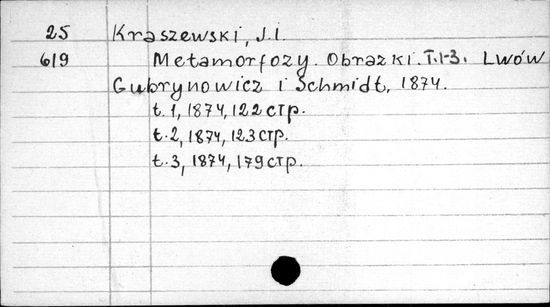 25 Kraszewski, J.I.
619 Metamorfozy. Obrazki. T.1-3. Lwów
Gubrynowicz i Schmidt, 1874.
t.1, 1874, 122 стр.
t.2, 1874, 123 стр.
t.3, 1874, 179 стр.